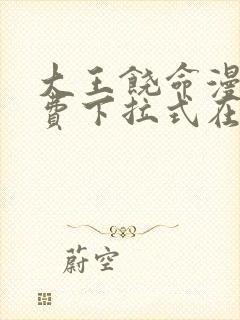 大王饶命漫
费下拉式在
蔚空